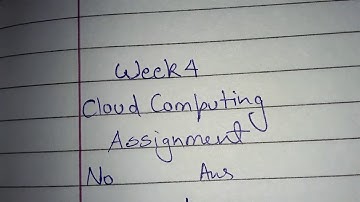 Week 4
Cloud Computing
Assignment
No Ans